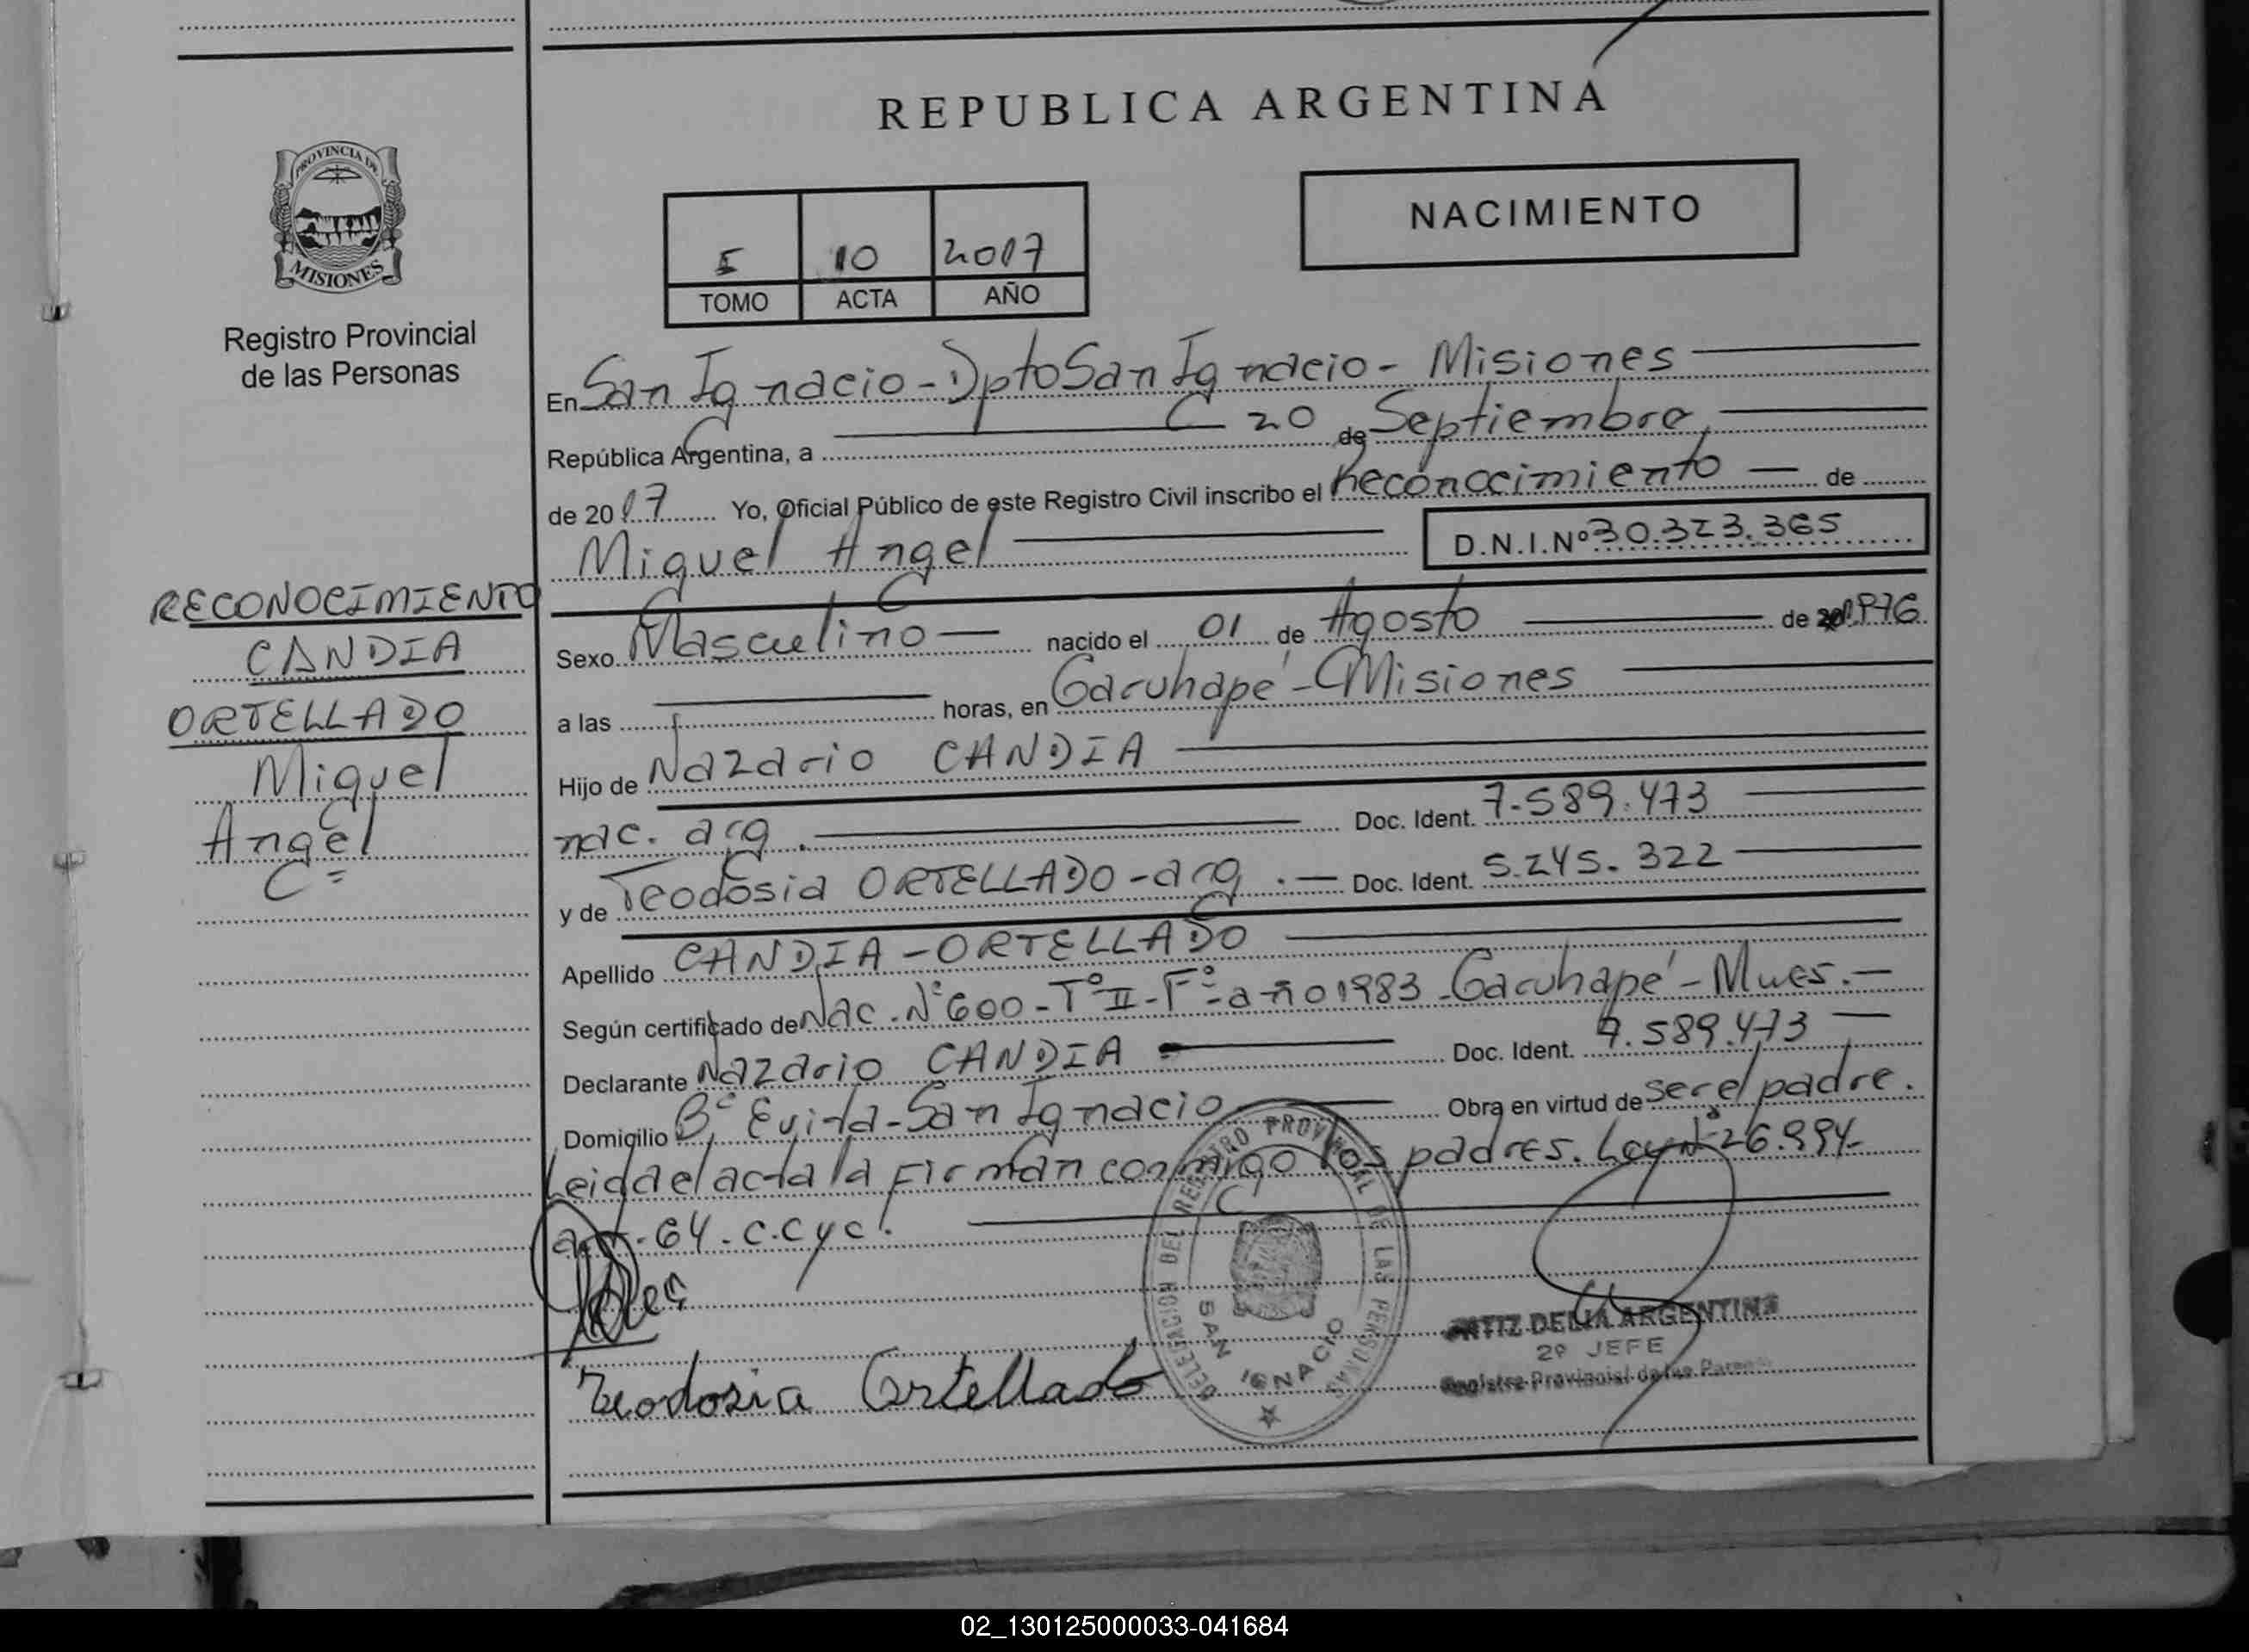 REPUBLICA ARGENTINA
PROVINCIA DE
MISIONES
Registro Provincial
de las Personas
NACIMIENTO
I 10 2017
TOMO ACTA AÑO
En San Ignacio - Dpto San Ignacio - Misiones
República Argentina, a 20 de Septiembre
de 2017 Yo, Oficial Público de este Registro Civil inscribo el Reconocimiento de
Miguel Angel D.N.I.Nº 30.323.365
RECONOCIMIENTO
CANDIA
ORTELLADO
Miguel
Angel
Sexo Masculino nacido el 01 de Agosto de 1976
a las horas, en Garuhapé - Misiones
Hijo de Nazario CANDIA
nac. arg. Doc. Ident. 7.589.473
y de Teodosia ORTELLADO - arg. Doc. Ident. 5.245.322
Apellido CANDIA - ORTELLADO
Según certificado de Nac. Nº 600 - Tº II - Fº - año 1983 - Garuhapé - Mnes.
Declarante Nazario CANDIA Doc. Ident. 7.589.473
Domicilio Bº Evita - San Ignacio Obra en virtud de ser el padre.
Leida el acta la firman conmigo los padres. Ley Nº 26.994-
art. 64. C.C y C.
Teodosia Ortellado
DELEGACION DEL REGISTRO PROVINCIAL DE LAS PERSONAS
SAN IGNACIO
ORTIZ DELIA ARGENTINA
2º JEFE
Registro Provincial de las
02_130125000033-041684